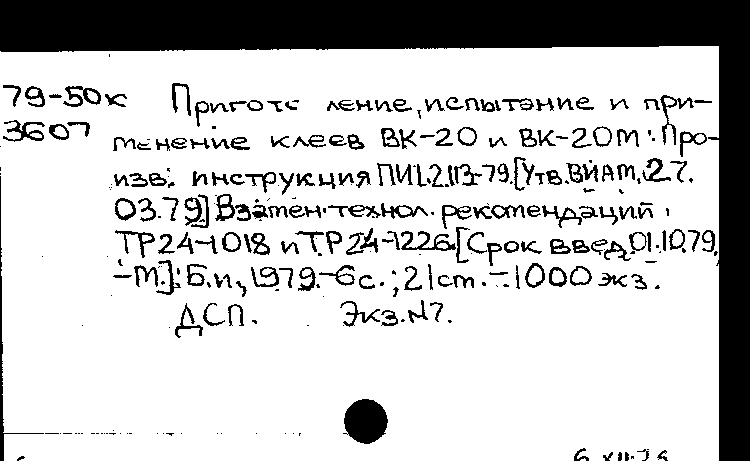 79-50к Приготовление, испытание и при-
3607 менение клеев ВК-20 и ВК-20М: Про-
изв. инструкция ПИ1.2.113-79. [Утв. ВИАМ, 27.
03.79] Взамен технол. рекомендаций
ТР24-1018 и ТР24-1226. [Срок введ. 01.10.79.
-М.]: Б.и., 1979.-6с.; 21см.-1000 экз.
ДСП. Экз.№7.